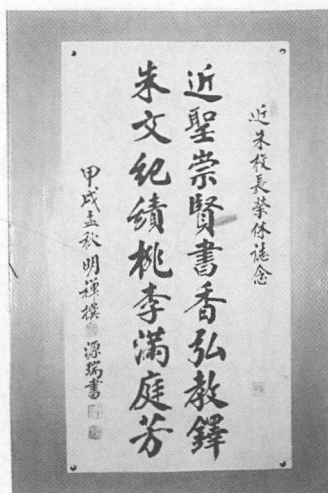 近朱校長榮休誌念
近聖崇賢書香弘教鐸
朱文紀績桃李滿庭芳
甲戌孟秋 明禪撰 源瑞書